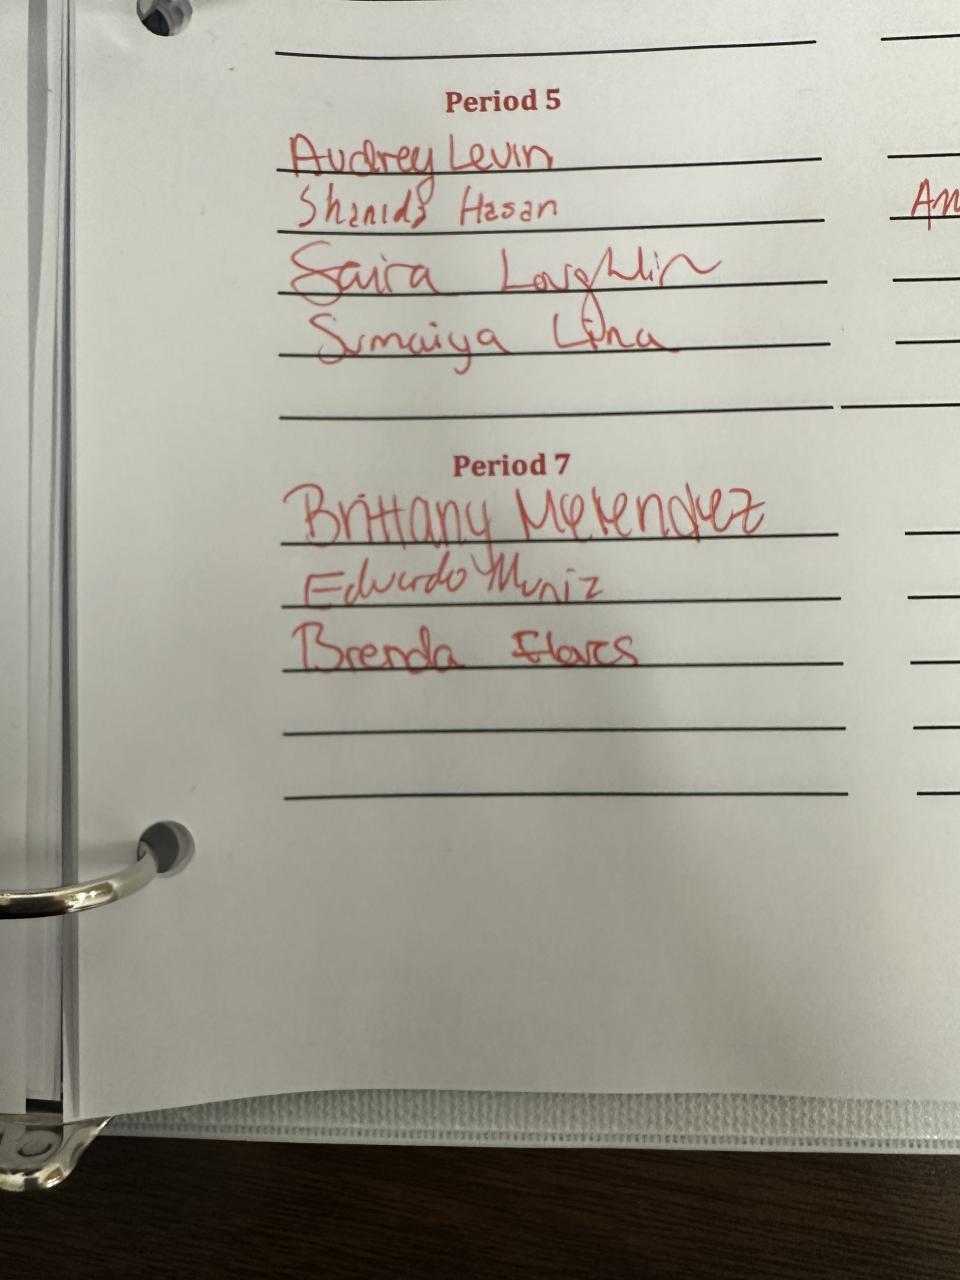 Period 5
Audrey Levin
Hasan
An
Saira Loughlin
Sumaiya Lina
Period 7
Brittany Melendez
Eduardo Muniz
Brenda Flores